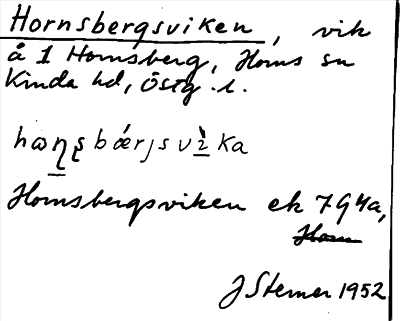 Hornsbergsviken, vik
å 1 Hornsberg, Horns sn
Kinda hd, Östg. l.
Hornsbergsviken ek 7G4a,
J Sterner 1952